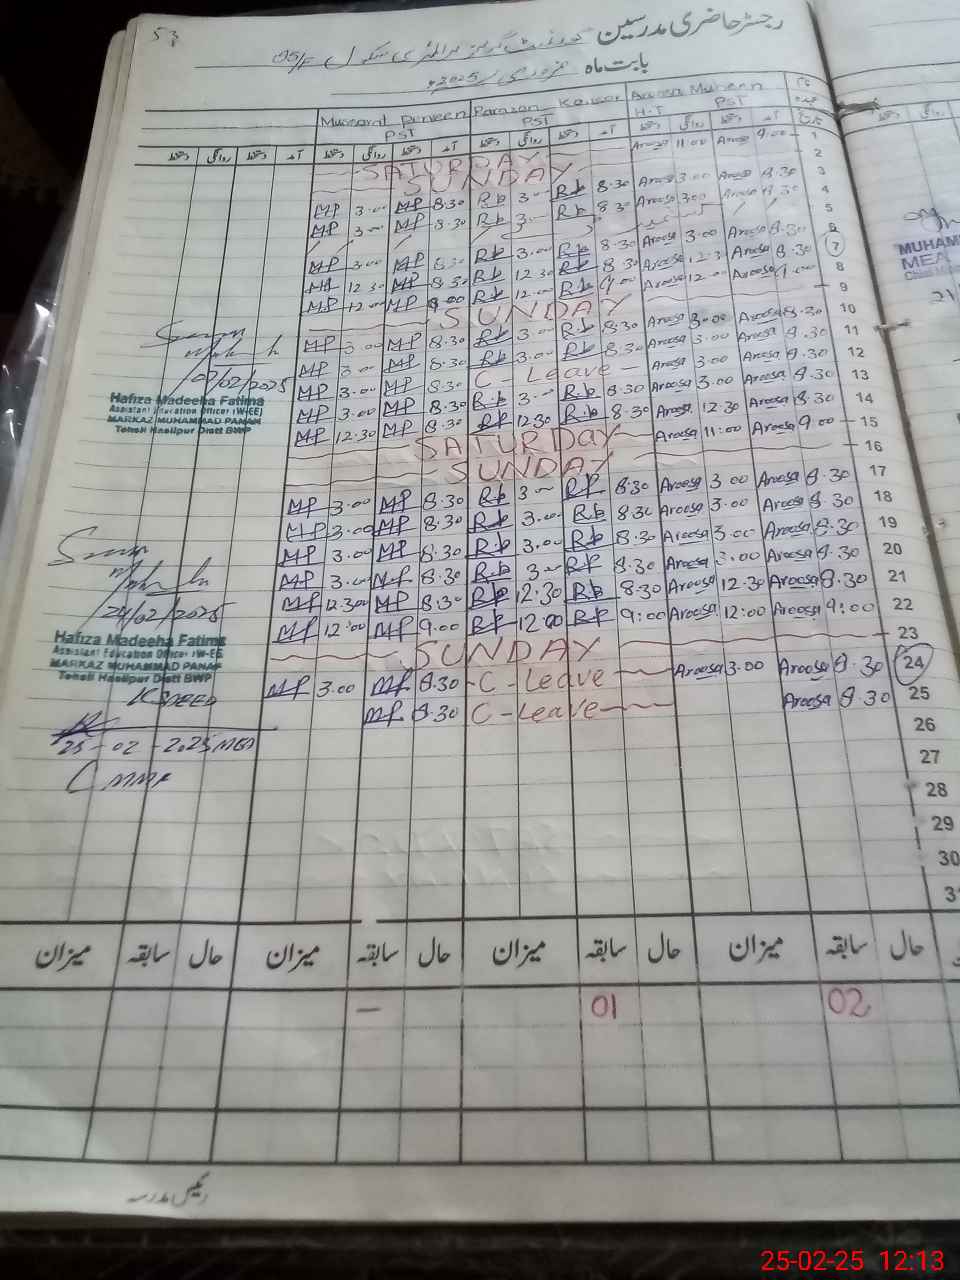 53
رجسٹر حاضری مدرسین گورنمنٹ گرلز پرائمری سکول 95/F
بابت ماہ فروری 2025ء
Musarat Perveen Parazan Kausar Aroosa Muheen
PST PST H-T PST
دستخط روانگی دستخط آمد دستخط روانگی دستخط آمد دستخط روانگی دستخط آمد دستخط روانگی دستخط آمد تاریخ
SATURDAY Aroosa 11:00 Aroosa 9.00 1
SUNDAY 2
MP 3.00 MP 8.30 R.p 3.00 R.p 8.30 Aroosa 3.00 Aroosa 8.30 3
MP 3.00 MP 8.30 R.p 3.00 R.p 8.30 Aroosa 3.00 Aroosa 8.30 4
5
MP 3.00 MP 8.30 R.p 3.00 R.p 8.30 Aroosa 3.00 Aroosa 8.30 6
MP 12.30 MP 8.30 R.p 12.30 R.p 8.30 Aroosa 12.30 Aroosa 8.30 7
MP 12.00 MP 9.00 R.p 12.00 R.p 9.00 Aroosa 12.00 Aroosa 9.00 8
SUNDAY 9
MP 3.00 MP 8.30 R.p 3.00 R.p 8.30 Aroosa 3.00 Aroosa 8.30 10
MP 3.00 MP 8.30 R.p 3.00 R.p 8.30 Aroosa 3.00 Aroosa 8.30 11
MP 3.00 MP 8.30 C-Leave Aroosa 3.00 Aroosa 8.30 12
MP 3.00 MP 8.30 R.p 3.00 R.p 8.30 Aroosa 3.00 Aroosa 8.30 13
MP 12.30 MP 8.30 R.p 12.30 R.p 8.30 Aroosa 12.30 Aroosa 8.30 14
SATURDAY Aroosa 11:00 Aroosa 9:00 15
SUNDAY 16
MP 3.00 MP 8.30 R.p 3.00 R.p 8.30 Aroosa 3.00 Aroosa 8.30 17
MP 3.00 MP 8.30 R.p 3.00 R.p 8.30 Aroosa 3.00 Aroosa 8.30 18
MP 3.00 MP 8.30 R.p 3.00 R.p 8.30 Aroosa 3.00 Aroosa 8.30 19
MP 3.00 MP 8.30 R.p 3.00 R.p 8.30 Aroosa 3.00 Aroosa 8.30 20
MP 12.30 MP 8.30 R.p 12.30 R.p 8.30 Aroosa 12.30 Aroosa 8.30 21
MP 12:00 MP 9.00 R.p 12:00 R.p 9:00 Aroosa 12:00 Aroosa 9:00 22
SUNDAY 23
MP 3.00 MP 8.30 C-Leave Aroosa 3.00 Aroosa 8.30 24
MP 8.30 C-Leave Aroosa 8.30 25
26
27
28
29
30
31
07/02/2025
Hafiza Madeeha Fatima
Assistant Education Officer (W-EE)
MARKAZ MUHAMMAD PANAH
Tehsil Hasilpur Distt BWP
24/02/2025
Hafiza Madeeha Fatima
Assistant Education Officer (W-EE)
MARKAZ MUHAMMAD PANAH
Tehsil Hasilpur Distt BWP
25-02-2025 MEA
میزان سابقہ حال میزان سابقہ حال میزان سابقہ حال میزان سابقہ حال
— 01 02
رئیس مدرسہ
دستخط روانگی
MUHAM
MEA
25-02-25 12:13